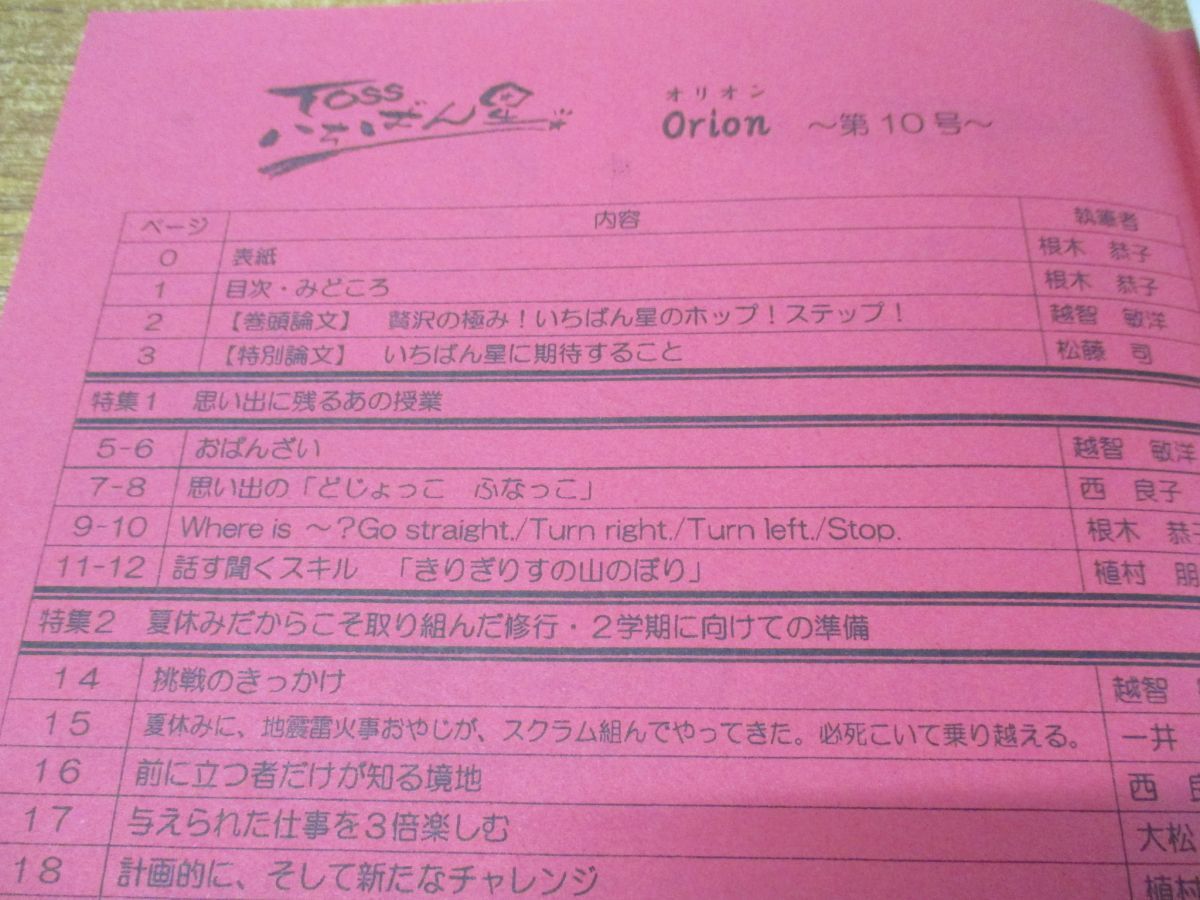 TOSS
いちばん星
オリオン
Orion ～第10号～
ページ 内容 執筆者
0 表紙 根木 恭子
1 目次・みどころ 根木 恭子
2 【巻頭論文】 贅沢の極み！いちばん星のホップ！ステップ！ 越智 敏洋
3 【特別論文】 いちばん星に期待すること 松藤 司
特集1 思い出に残るあの授業
5-6 おばんざい 越智 敏洋
7-8 思い出の「どじょっこ ふなっこ」 西 良子
9-10 Where is ～？Go straight./Turn right./Turn left./Stop. 根木 恭
11-12 話す聞くスキル 「きりぎりすの山のぼり」 植村 朋
特集2 夏休みだからこそ取り組んだ修行・2学期に向けての準備
14 挑戦のきっかけ 越智
15 夏休みに、地震雷火事おやじが、スクラム組んでやってきた。必死こいて乗り越える。 一井
16 前に立つ者だけが知る境地 西 良
17 与えられた仕事を3倍楽しむ 大松
18 計画的に、そして新たなチャレンジ 植村